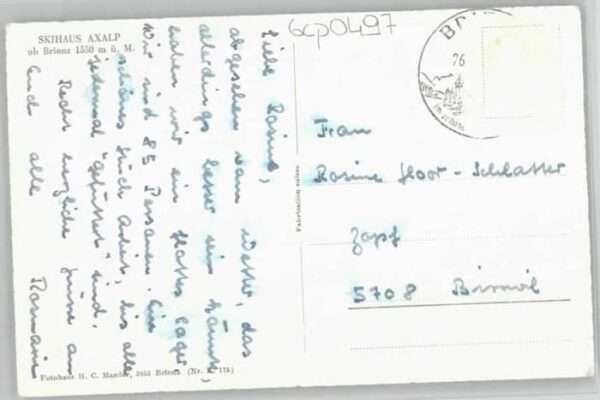 SKIHAUS AXALP
ob Brienz 1550 m ü. M.
6cp0497
Bri
76
Liebe Rosine,
abgesehen vom Wetter, das
allerdings besser sein könnte,
haben wir ein flottes Lager.
Wir sind 85 Personen. Ein
schönes Stück Arbeit, bis alle
jedesmal "gefüttert" sind.
Recht herzliche Grüsse an
Euch alle
Rosmarie
Frau
Rosine Hoor-Schlatter
Zopf
5708 Birrwil
Fabrication suisse
Fotohaus H. C. Maeder, 3855 Brienz (Nr. 175)